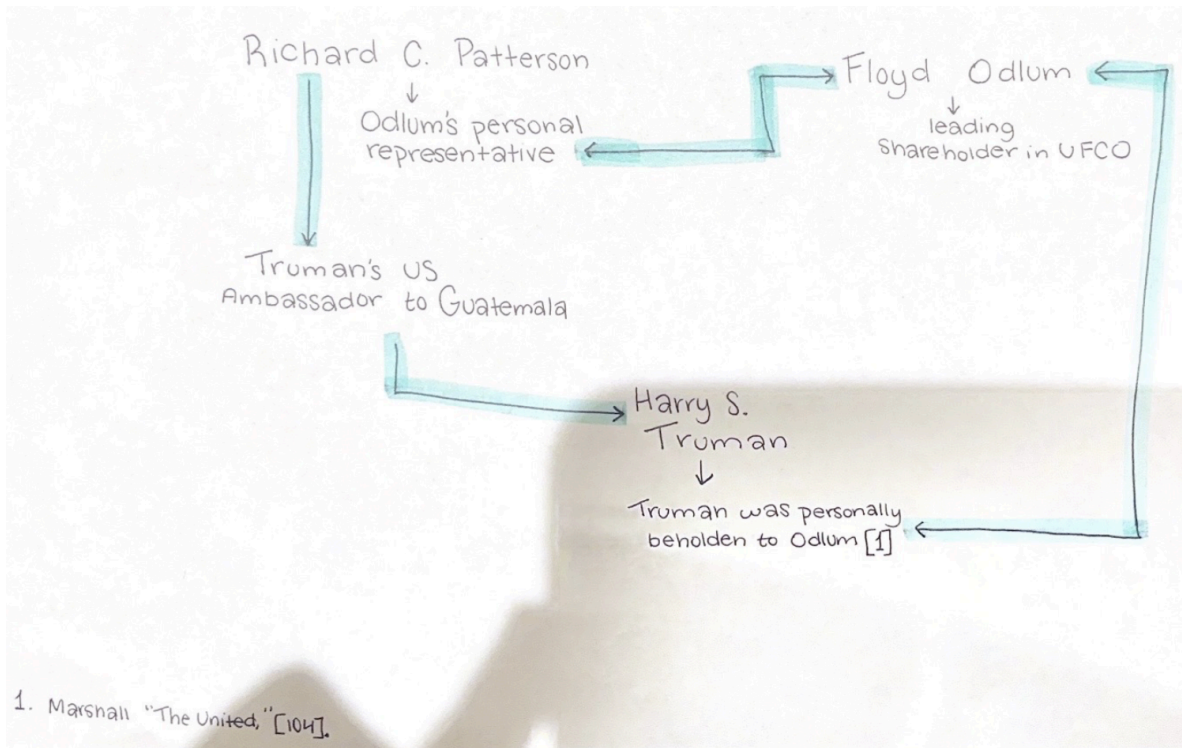 Richard C. Patterson
↓
Odlum's personal
representative
Floyd Odlum
↓
leading
shareholder in UFCO
Truman's US
Ambassador to Guatemala
Harry S.
Truman
↓
Truman was personally
beholden to Odlum [1]
1. Marshall "The United," [104].